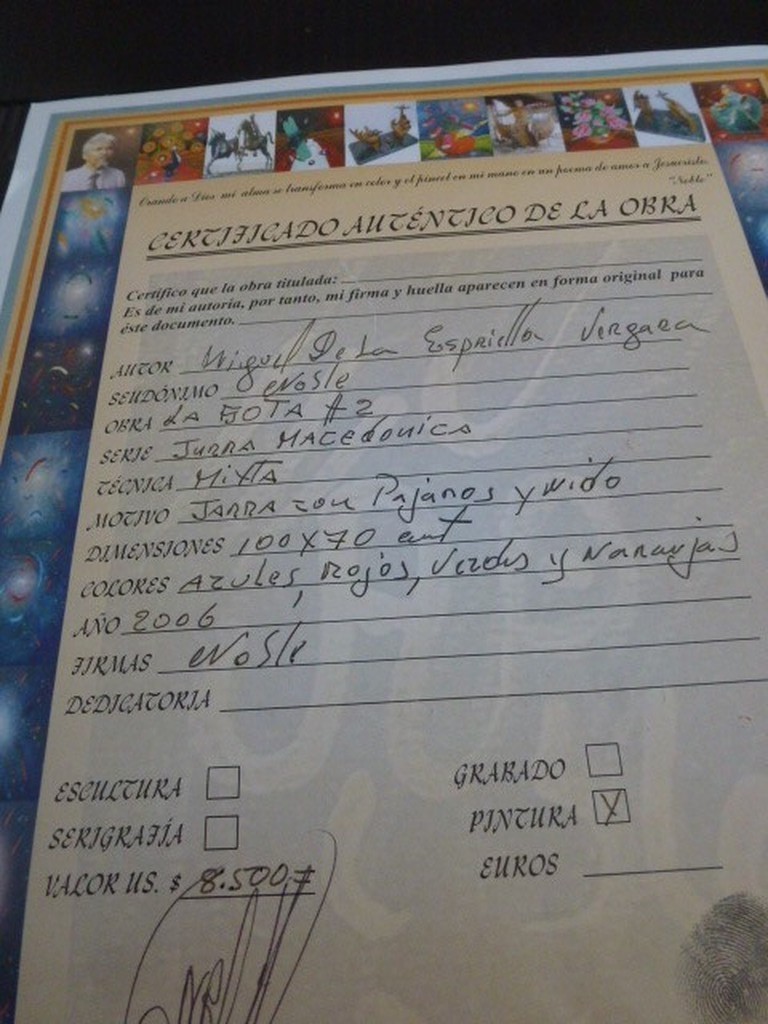 Orando a Dios mi alma se transforma en color y el pincel en mi mano en un poema de amor a Jesucristo.
"Noble"
CERTIFICADO AUTÉNTICO DE LA OBRA
Certifico que la obra titulada:
Es de mi autoria, por tanto, mi firma y huella aparecen en forma original para
éste documento.
AUTOR Miguel De La Espriella Vergara
SEUDÓNIMO Noble
OBRA LA BOTA #2
SERIE JARRA MACEDONICA
TÉCNICA MIXTA
MOTIVO JARRA con Pajaros y Nido
DIMENSIONES 100X70 cmt
COLORES AZules, Rojos, Verdes y Naranjas
AÑO 2006
FIRMAS Noble
DEDICATORIA
ESCULTURA
GRABADO
SERIGRAFÍA
PINTURA X
VALOR US. $ 8.500
EUROS